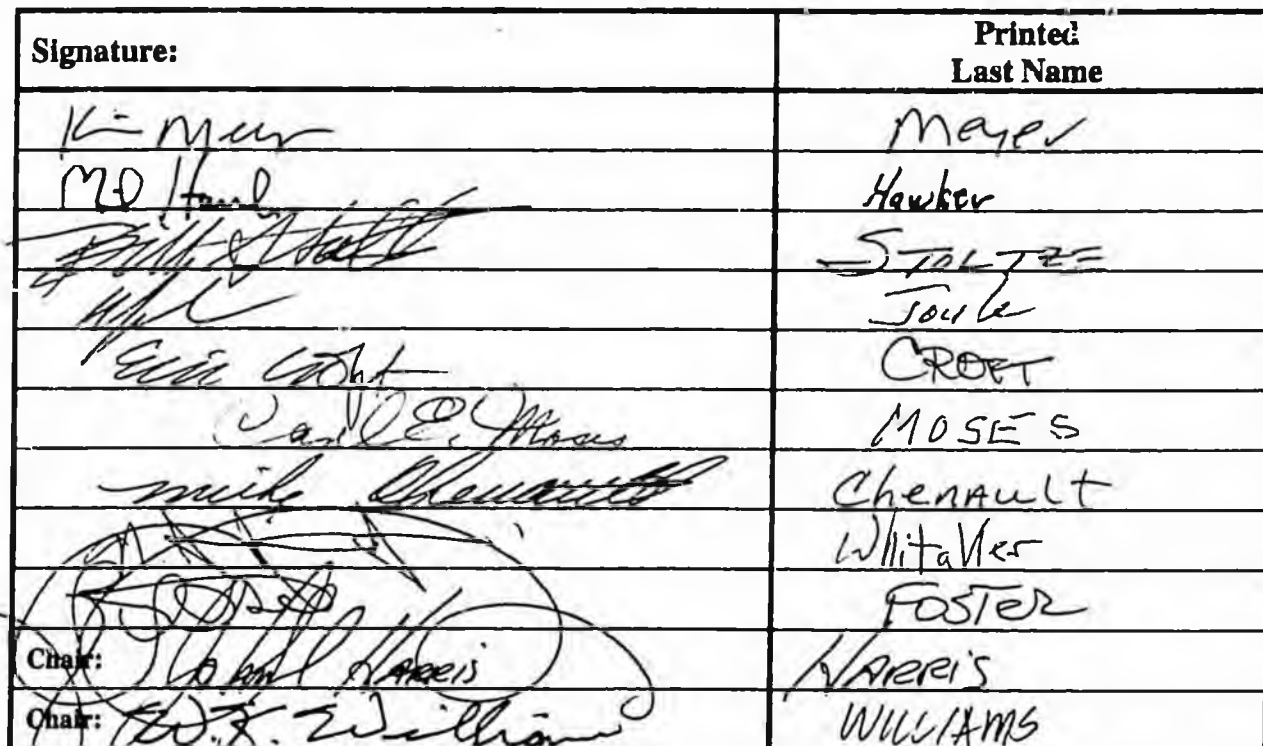 Signature: Printed
Last Name
Meyer
Hawker
Bill Stoltze STOLTZE
Joule
Eric Croft CROFT
Carl E. Moses MOSES
mike Chenault Chenault
Whitaker
FOSTER
Chair: John Harris HARRIS
Chair: W.K. Williams WILLIAMS